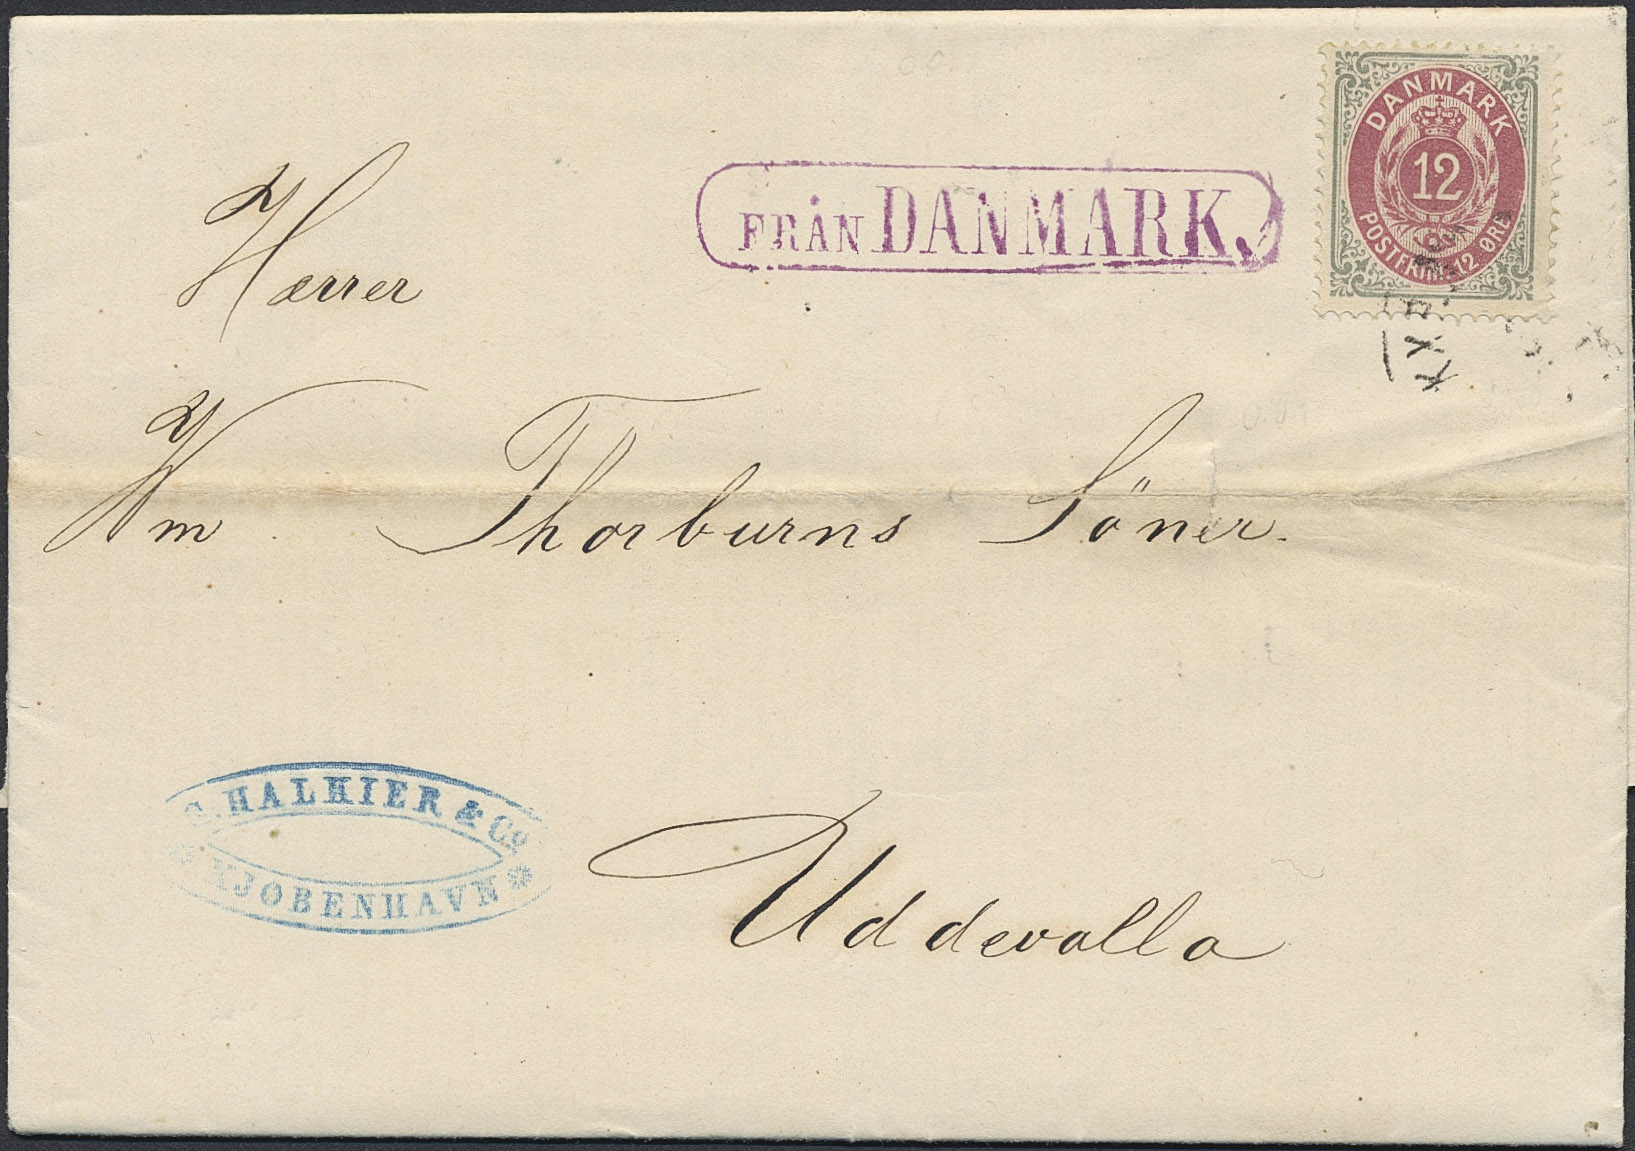 DANMARK
12
POSTFRIM. 12 ØRE
FRÅN DANMARK.
Hærrer
Wm Thorburns Söner.
Uddevalla
HALKIER & Co
KJOBENHAVN